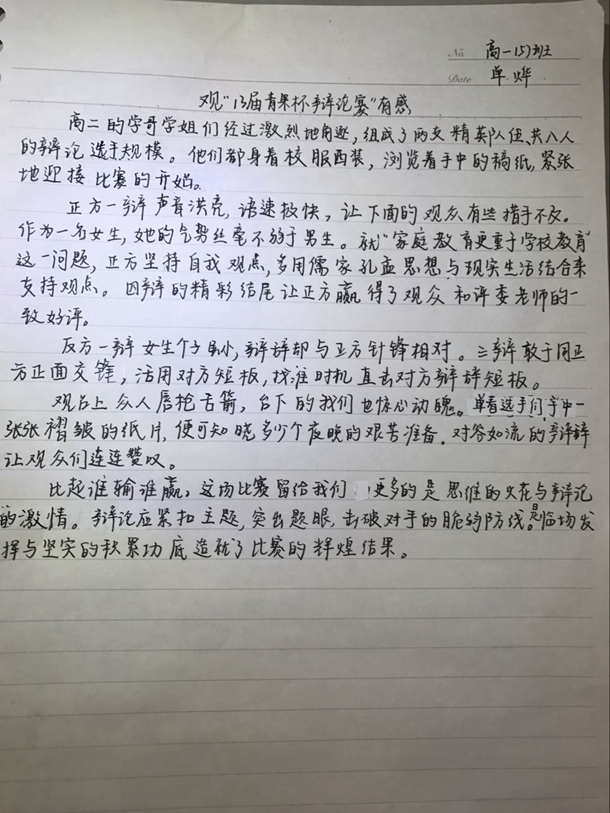 No. 高一(5)班
Date 单烨
观"13届青果杯辩论赛"有感
高二的学哥学姐们经过激烈地角逐,组成了两支精英队伍、共八人
的辩论选手规模。他们都身着校服西装,浏览着手中的稿纸,紧张
地迎接比赛的开始。
正方一辩声音洪亮,语速极快,让下面的观众有些措手不及。
作为一名女生,她的气势丝毫不弱于男生。就"家庭教育更重于学校教育"
这一问题,正方坚持自我观点,多用儒家孔孟思想与现实生活结合来
支持观点。四辩的精彩结尾让正方赢得了观众和评委老师的一
致好评。
反方一辩女生个子虽小,辩辞却与正方针锋相对。三辩敢于同正
方正面交锋,活用对方短板,找准时机直击对方辩辞短板。
观台上众人唇枪舌箭,台下的我们也惊心动魄。单看选手们手中一
张张褶皱的纸片,便可知晓多少个夜晚的艰苦准备.对答如流的辩辞
让观众们连连赞叹。
比起谁输谁赢,这场比赛留给我们更多的是思维的火花与辩论
的激情。辩论应紧扣主题,突出题眼,击破对手的脆弱防线。是临场发
挥与坚实的积累功底造就了比赛的辉煌结果。